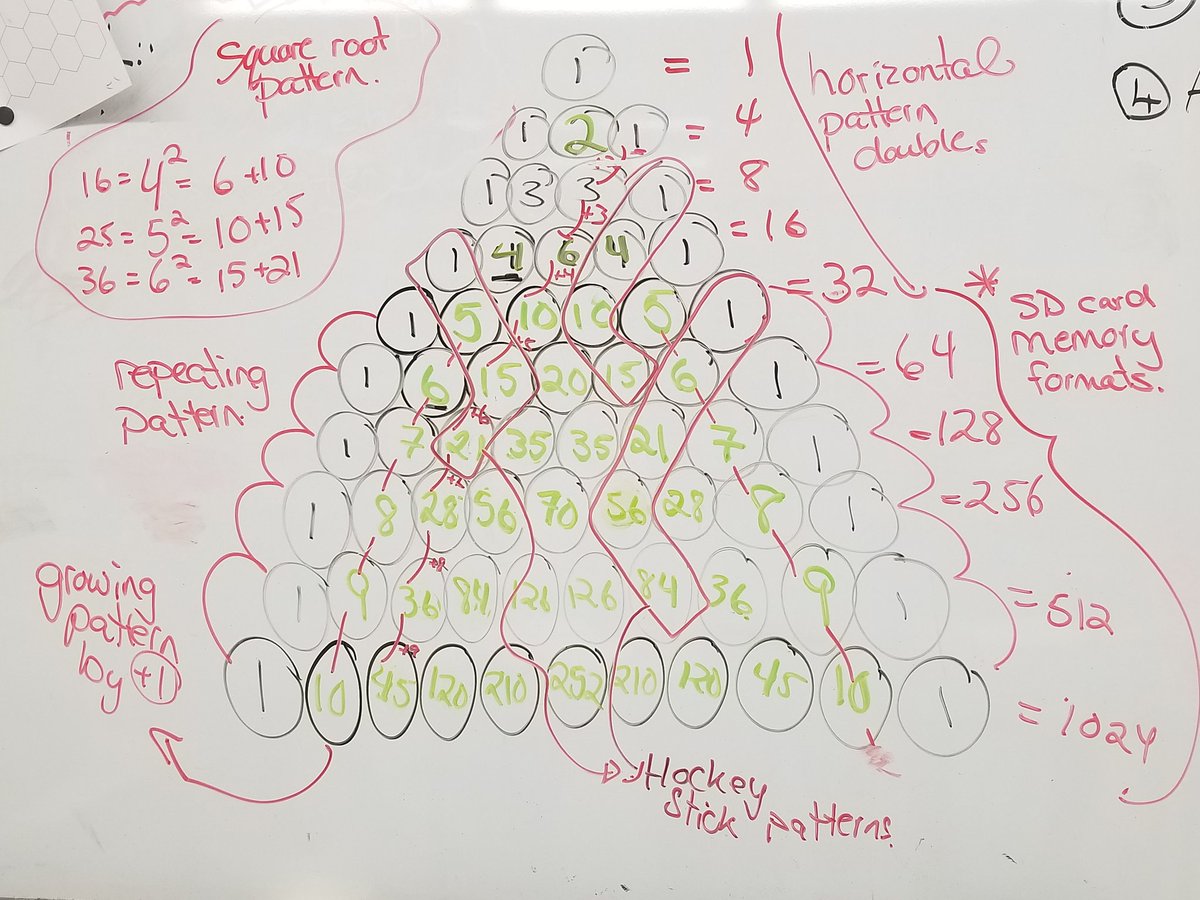 Square root
pattern.
16 = 4² = 6 + 10
25 = 5² = 10 + 15
36 = 6² = 15 + 21
1 = 1
1 2 1 = 4
1 3 3 1 = 8
+3
1 4 6 4 1 = 16
+4
1 5 10 10 5 1 = 32
1 6 15 20 15 6 1 = 64
+6
1 7 21 35 35 21 7 1 = 128
1 8 28 56 70 56 28 8 1 = 256
+8
1 9 36 84 126 126 84 36 9 1 = 512
+9
1 10 45 120 210 252 210 120 45 10 1 = 1024
horizontal
pattern
doubles
* SD card
memory
formats.
4
repeating
pattern.
growing
pattern
by +1
Hockey
Stick patterns.